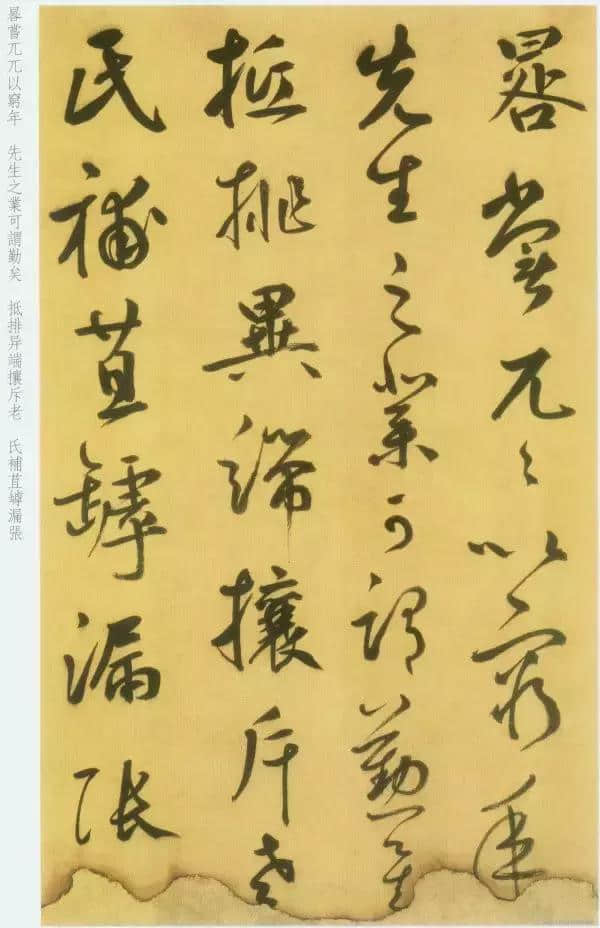 晷嘗兀々以窮年
先生之業可謂勤矣
抵排異端攘斥老
氏補苴罅漏張
晷嘗兀兀以窮年 先生之業可謂勤矣 抵排异端攘斥老 氏補苴罅漏張